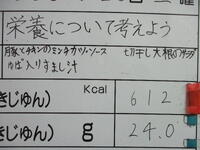 栄養について考えよう
豚とチキンのミンチカツ・ソース 切干し大根のサラダ
ゆば入りすまし汁
きじゅん) Kcal 612
きじゅん) g 24.0